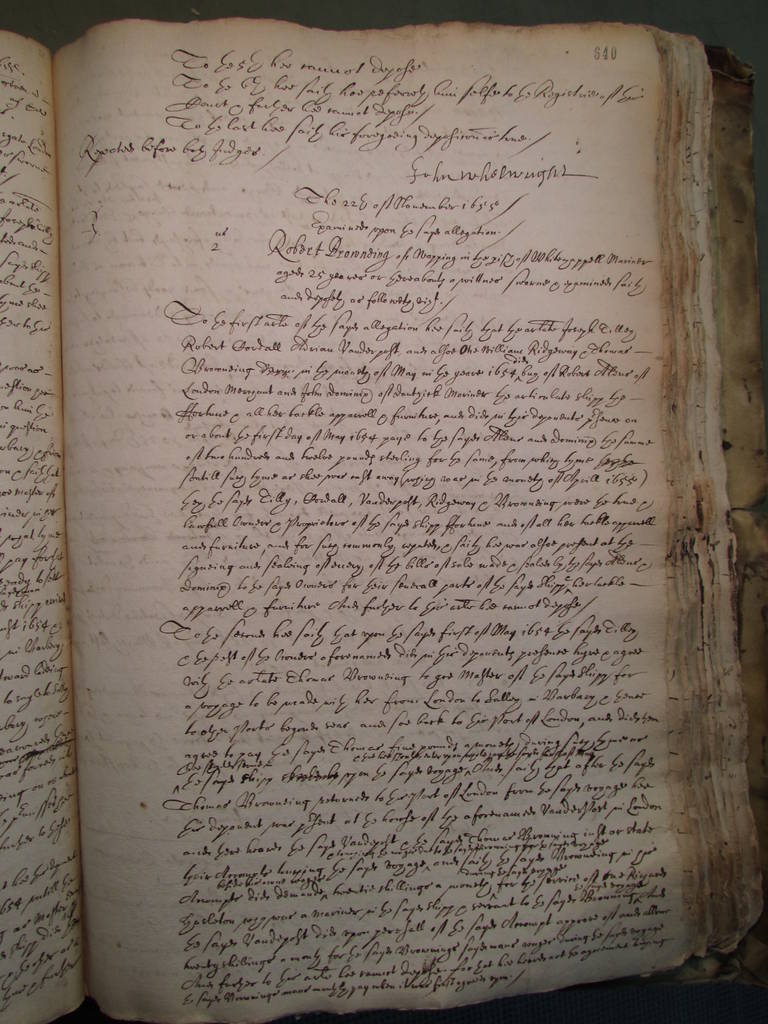 640
To the 5th hee cannot depose
To the 6th hee saith hee referreth him selfe to the Registrie of this
Court & further hee cannot depose./
To the last hee saith his foregoeing deposition is true./
Repeated before both Judges
John Whelwright
The 22th of November 1655
Examined upon the sayd allegation./
2
Robert Browneing of Wapping in the parish of Whitechappell Mariner
aged 25 yeares or thereabouts a wittnes sworne & examined saith
and deposeth as followeth vizt./
To the first arlate of the sayd allegation hee saith that the arlate Joseph Tilley
Robert Cordall Adrian Vanderpost, and alsoe one William Ridgeway & Thomas
Browneing did in the moneth of May in the yeare 1654 buy of Robert Allens of
London Merchant and John Dominix of Dantzick Mariner the arlate shipp the
Fortune & all her tackle apparrell & furniture, and did in this deponents presence on
or about the first day of May 1654 paye to the sayd Allens and Dominix the summe
of two hundred and twelve pounds sterling for the same, from which tyme
untill such tyme as shee was cast away (which was in the moneth of Aprill 1655)
they the sayd Tilly, Cordall, Vanderpost, Ridgeway & Browneing were the true &
lawfull Owners & Proprietors of the sayd shipp Fortune and of all her tackle apparrell
and furniture, and for such commonly reputed, & saith hee was alsoe present at the
signeing and sealing of every of the bills of sale made & sealed by the sayd Allens &
Dominix to the sayd Owners for their severall parts of the sayd shipp & her tackle
apparrell & furniture And further to this arlate hee cannot depose/
To the second hee saith that upon the sayd first of May 1654 the sayd Tilley
& the rest of the Owners aforenamed did in this deponents presence hyre & agree
with the arlate Thomas Browneing to goe Master of the sayd shipp for
a voyage to be made with her from London to Salley in Barbary & thence
to other Ports beyond seas and soe back to this Port of London, and did then
agree to pay the sayd Thomas five pounds a moneth dureing such tyme as
the sayd shipp upon the sayd voyage, And saith that after the sayd
Thomas Browneing returned to this Port of London from the sayd voyage hee
this deponent was present at the house of the aforenamed Vanderpost in London
and there heard the sayd Vanderpost & the sayd Thomas Browneing cast or state
their Accompts touching the sayd voyage, and saith the sayd Browneing in his
Accompt did demand twentie shillings a moneth for the service of one Richard
who was a Mariner in the sayd shipp & servant to the sayd Browneing And
the sayd Vanderpost did upon perusall of the sayd Accompt approve of and allow
twenty shillings a moneth for the sayd Brownings sayd mans wages dureing the sayd voyage
And further to this arlate hee cannot depose